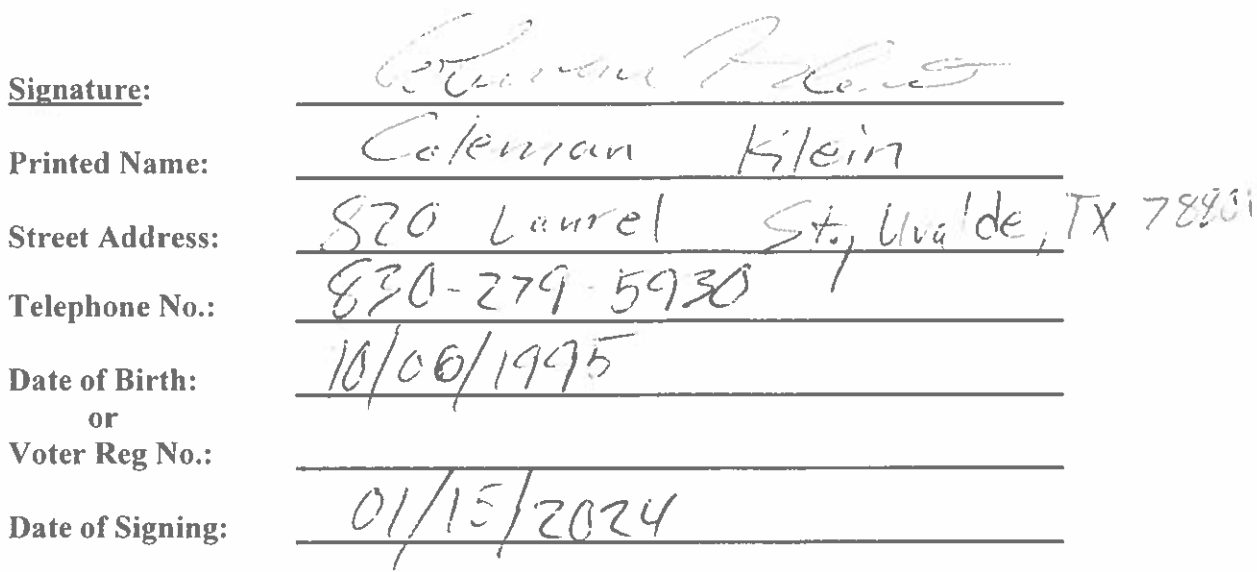 Signature:
Printed Name: Coleman Klein
Street Address: 820 Laurel St., Uvalde, TX 78801
Telephone No.: 830-279-5930
Date of Birth: 10/06/1995
or
Voter Reg No.:
Date of Signing: 01/15/2024